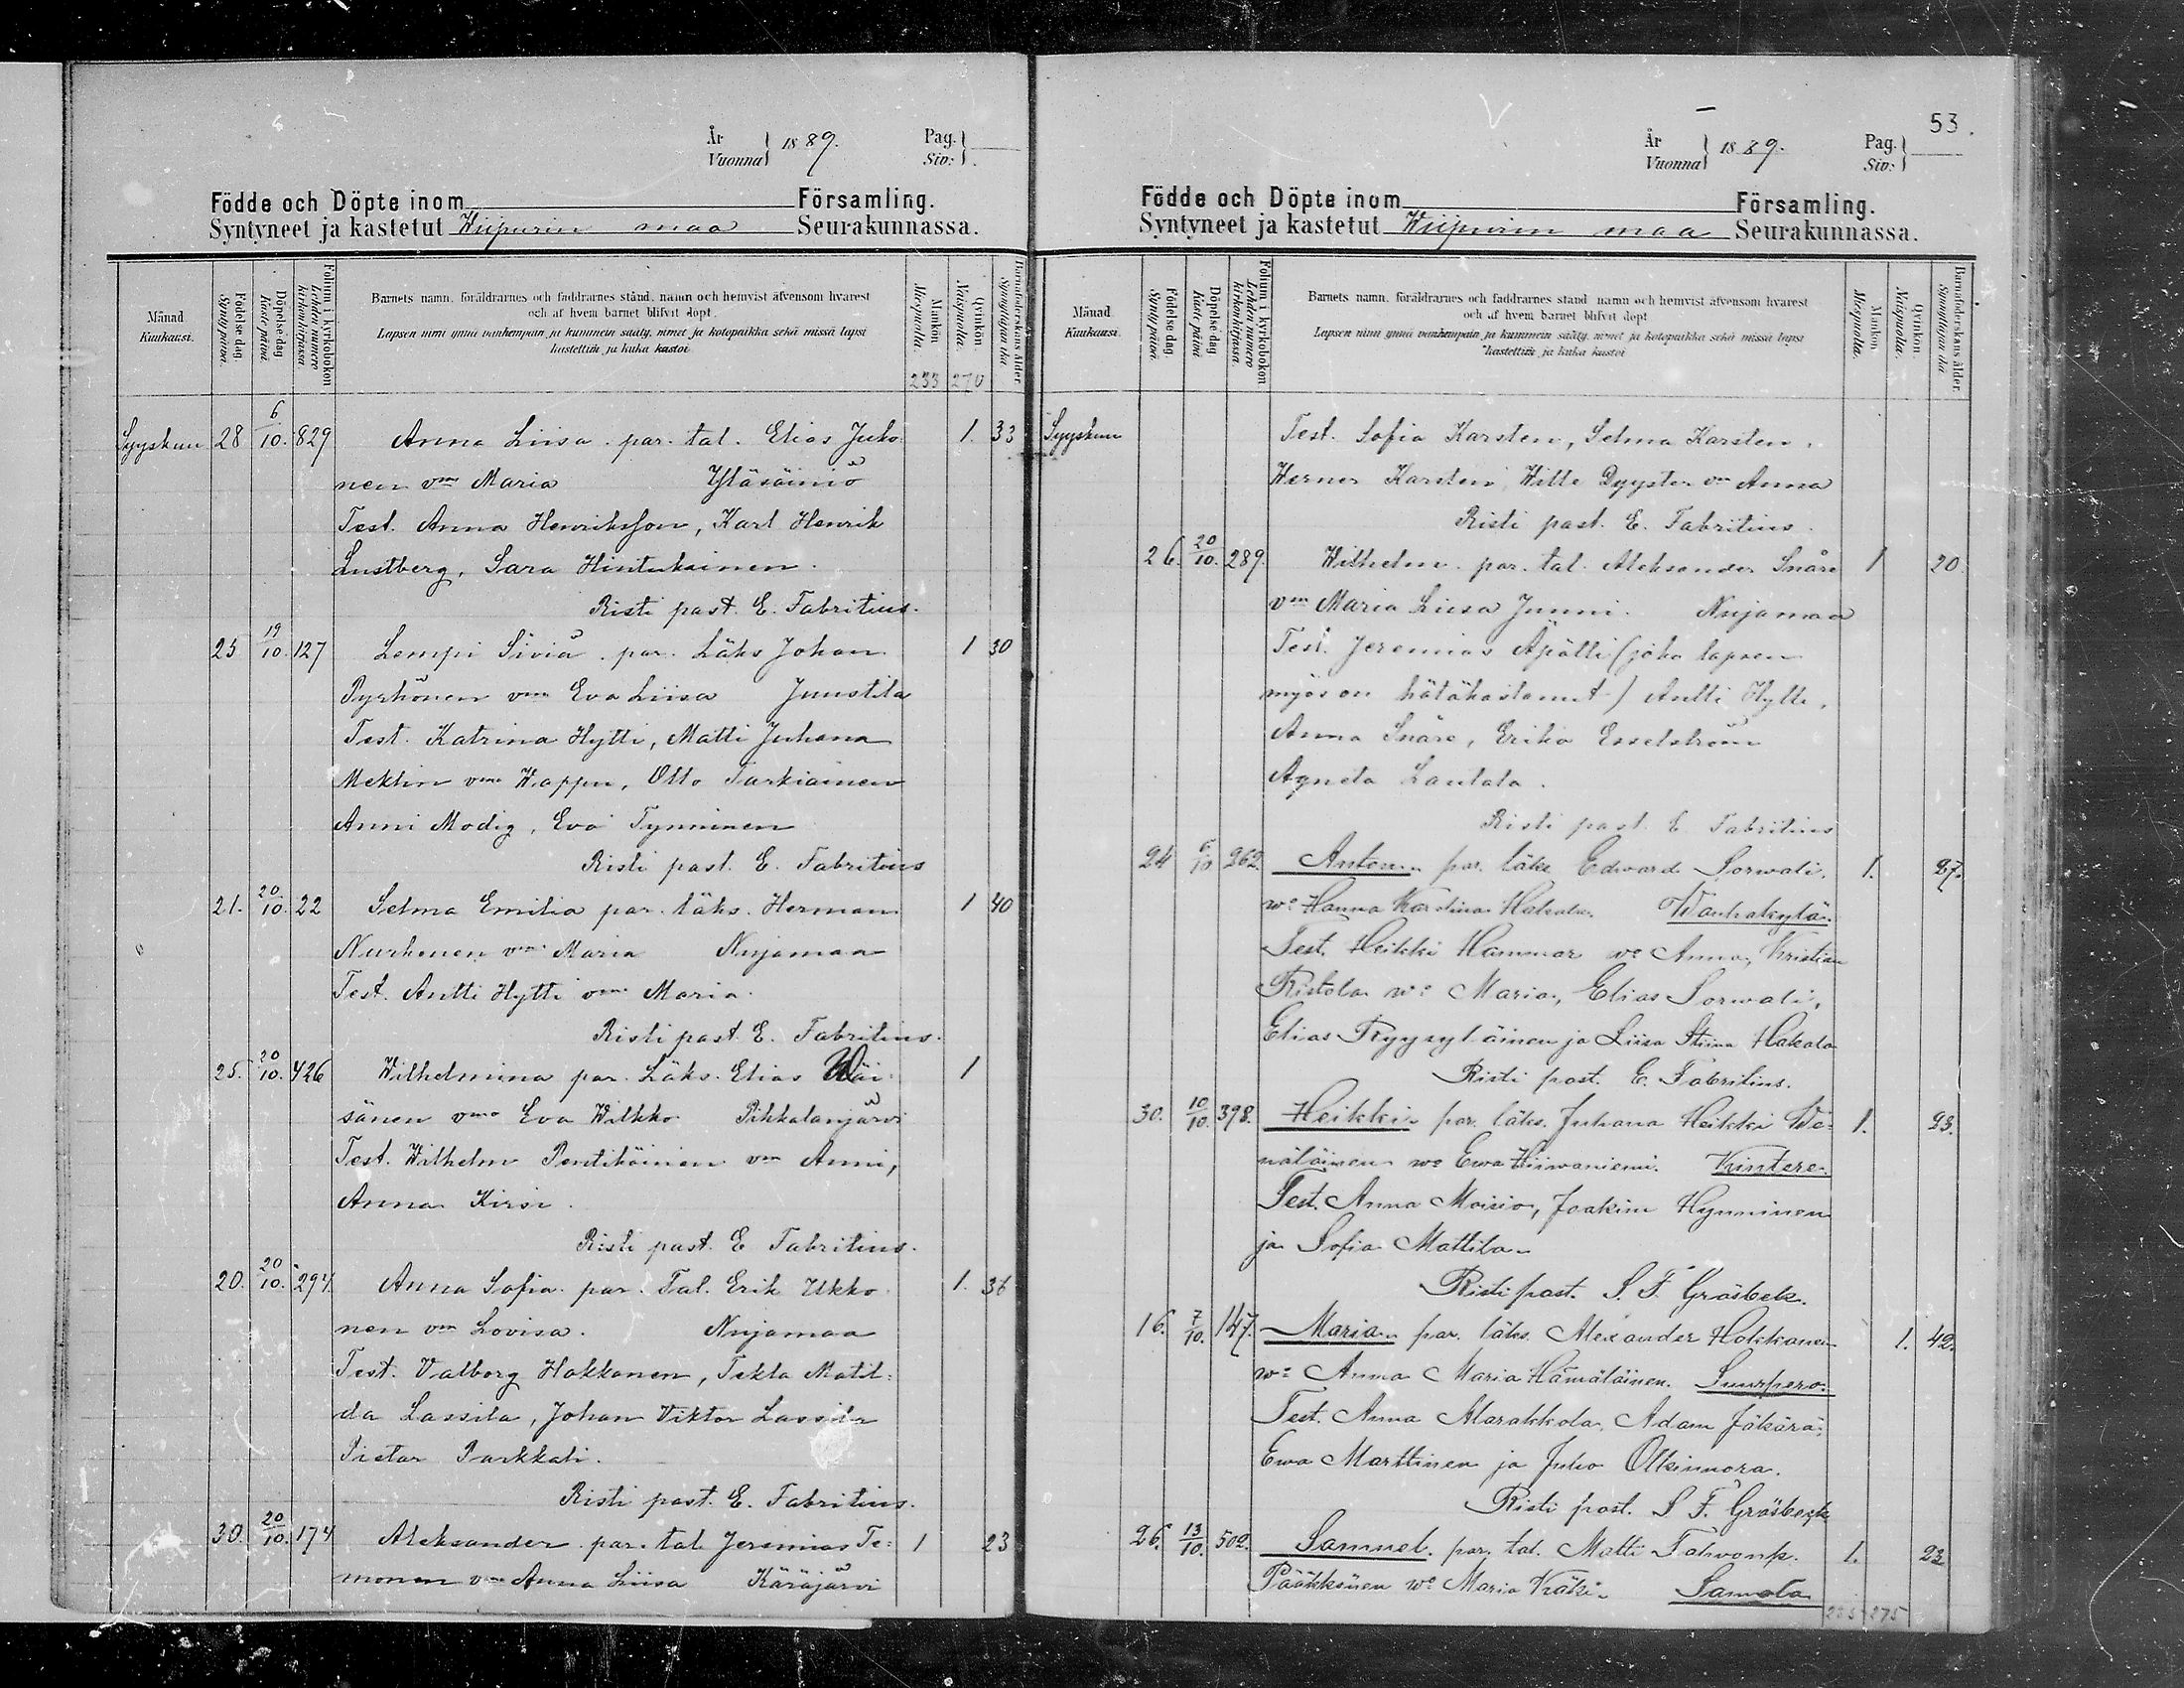 År
Vuonna } 1889.
Pag.
Siv: }
Födde och Döpte inom Församling.
Syntyneet ja kastetut Wiipurin maa Seurakunnassa.
Månad
Kuukausi.
Födelse dag
Syntypäivä.
Döpelse dag
Kaste päivä
Folium i kyrkoboken
Lehden numero
kirkonkirjassa
Barnets namn, föräldrarnes och faddrarnes stånd, namn och hemvist äfvensom hvarest
och af hvem barnet blifvit döpt.
Lapsen nimi ynnä vanhempain ja kummein sääty, nimet ja kotopaikka sekä missä lapsi
kastettiin ja kuka kastoi
Mankön
Miespuolia.
Qvinkön.
Naispuolia.
Barnaföderskans ålder.
Synnyttäjän ikä
233 270
Syyskuu 28 6/10. 829 Anna Liisa. par. tal. Elias Juho- 1. 33
nen vmo Maria Yläsäiniö
Test. Anna Henriksson, Karl Henrik
Lustberg, Sara Hintukainen.
Risti past. E. Fabritius.
25 19/10. 127 Lempi Siviä. par. Läks Johan 1 30
Pyrhönen vmo Eva Liisa Juustila
Test. Katrina Hytti, Matti Juhana
Meklin vmo Wappu, Otto Tarkiainen
Anni Modig, Eva Tynninen
Risti past. E. Fabritius
21. 20/10. 22 Selma Emilia par. läks. Herman 1 40
Nurhonen vmo Maria Nuijamaa
Test. Antti Hytti vmo Maria.
Risti past. E. Fabritius.
25. 20/10. 426 Wilhelmina par. Läks. Elias Wäi- 1
sänen vmo Eva Wilkko Pihkalanjärvi
Test. Wilhelm Pentikäinen vmo Anni,
Anna Kirsi.
Risti past. E. Fabritius.
20. 20/10. 294 Anna Sofia. par. Tal. Erik Ukko- 1. 36
nen vmo Lovisa. Nuijamaa
Test. Valborg Hakkanen, Tekla Matil-
da Lassila, Johan Viktor Lassila
Pietar Parkkali.
Risti past. E. Fabritius.
30. 20/10. 174 Aleksander par. tal. Jeremias Te- 1 23
monen vmo Anna Liisa Käräjärvi
53.
År
Vuonna } 1889.
Pag.
Siv: }
Födde och Döpte inom Församling.
Syntyneet ja kastetut Wiipurin maa Seurakunnassa.
Månad
Kuukausi.
Födelse dag
Syntypäivä.
Döpelse dag
Kaste päivä
Folium i kyrkoboken
Lehden numero
kirkonkirjassa.
Barnets namn, föräldrarnes och faddrarnes stånd, namn och hemvist äfvensom hvarest
och af hvem barnet blifvit döpt
Lapsen nimi ynnä vanhempain ja kummein sääty, nimet ja kotopaikka sekä missä lapsi
kastettiin ja kuka kastoi
Mankön
Miespuolia.
Qvinkön.
Naispuolia.
Barnaföderskans ålder.
Synnyttäjän ikä
Syyskuu Test. Sofia Karsten, Selma Karsten.
Werner Karsten, Wille Pyyster vmo Anna
Risti past. E. Fabritius.
26. 20/10. 289. Wilhelm. par. tal. Aleksander Snåre 1 20
vmo Maria Liisa Junni. Nuijamaa
Test. Jeremias Äpätti (joka lapsen
myös on hätäkastanut) Antti Hytti,
Anna Snåre, Erika Esselström
Agneta Lautala.
Risti past. E. Fabritius
24 6/10. 262. Anton. par. läks Edward Sorwali. 1. 27.
wo Hanna Karolina Hakala. Wanhakylä.
Test. Heikki Hammar wo Anna, Kristian
Ristola wo Maria, Elias Sorwali,
Elias Ryysyläinen ja Liisa Stiina Hakala
Risti past. E. Fabritius.
30. 10/10. 398. Heikki. par. läks. Juhana Heikki We- 1. 23.
näläinen wo Ewa Hiiwaniemi. Kintere.
Test. Anna Moisio, Joakim Hynninen
ja Sofia Mattila.
Risti past. S. F. Gräsbeck.
16. 7/10. 147. Maria. par. läks. Alexander Hokkanen 1. 42.
wo Anna Maria Hämäläinen. Suurpero.
Test. Anna Alarakkola, Adam Jäkärä,
Ewa Marttinen ja Juho Olkinuora.
Risti past. S. F. Gräsbeck
26. 13/10. 502. Samuel. par. tal. Matti Tahvonp. 1. 22
Pääkkönen wo Maria Kräki. Samola
235 275